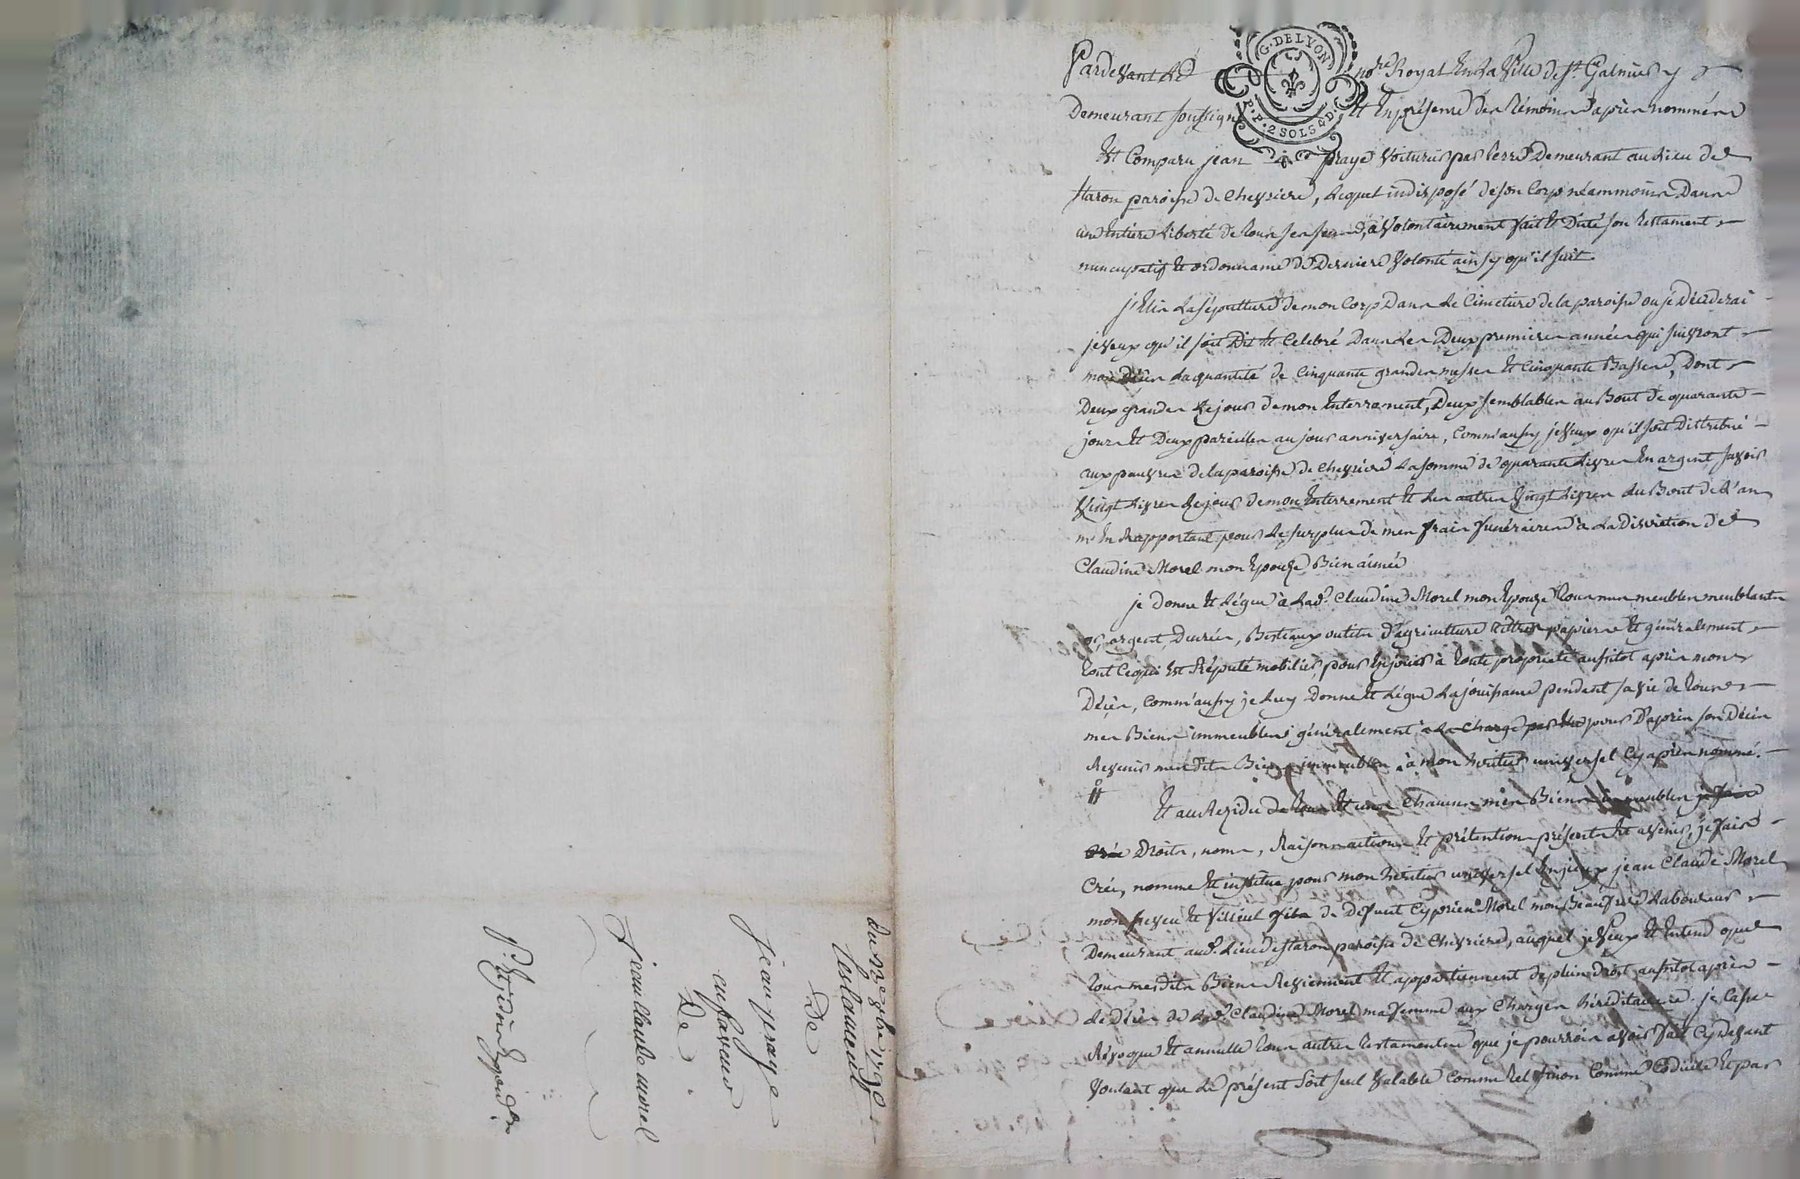 G. DE LYON
P. P. 2 SOLS 4 D.
Pardevant le no.re Royal En la Ville de St Galmier y
Demeurant soussigné Et En présence des témoins après nommés
Est Comparu jean praye Voiturier par terre Demeurant au Lieu de
paroisse de Chevrieres, Lequel indisposé de son Corp néammoins Dans
une Entiere Liberté de tous ses sens, à Volontairement fait Et Dicté son testament
nuncupatif Et ordonnance de Derniere Volonté ainsy qu'il suit.
j'Elis La sépulture de mon Corp Dans Le Cimetiere de la paroisse ou je Décéderai
je veux qu'il soit Dit Et Celebré Dans Les Deux premieres années qui suivront
mon Décès La quantité de Cinquante grandes messes Et Cinquante Basses, Dont
Deux grandes Le jour de mon Enterrement, Deux semblables au Bout de quarante
jours Et Deux pareilles au jour anniversaire, Comm'aussy je Veux qu'il soit Distribué
aux pauvres de la paroisse de Chevrieres La somme de quarante Livres En argent savoir
Vingt Livres Le jour de mon Enterrement Et Les autres Vingt Livres au Bout de L'an
m'En Rapportant pour Le surplus de mes frais funéraires à La Discretion de
Claudine Morel mon Epouze Bien aimée
je Donne Et Légue à Lad. Claudine Morel mon Epouze tous mes meubles meublants
or, argent, Denrées, Bestiaux outils d'agriculture titres papiers Et généralement
tout Ce qui Est Réputé mobilier, pour En jouir à toute proprieté aussitot après mon
Décès, Comm'aussy je Luy Donne Et Légue La jouissance pendant sa vie de tous
mes Biens immeubles généralement à La Charge pour D'après son Décès
Revenir mesdits Biens immeubles à mon heritier universel Cy après nommé.
Et au Rezidu de tous Et uns Chacuns mes Biens immeubles
Droits, noms, Raisons actions Et prétentions présents Et avenir, je fais
Crée, nomme Et institue pour mon heritier universel jean Claude Morel
mon neveu Et filleul fils de Defunt Cyprien Morel mon Beaufrere Laboureur
Demeurant aud. Lieu paroisse de Chevrieres, auquel je Veux Et Entend que
tous mesdits Biens Reviennent Et appartiennent de plein droit aussitot après
Le Décès de Lad. Claudine Morel ma femme aux Charges héréditaires. je Casse
Révoque Et annulle tous autres testaments que je pourrois avoir fait Cy devant
Voulant que Le présent soit seul Valable Comme tel sinon Comme Codicile Et par
testament
De
jean praye
en faveur
De
jean Claude morel